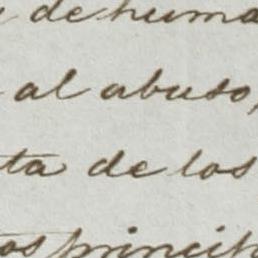 de huma
al abuso,
ta de los
os princip